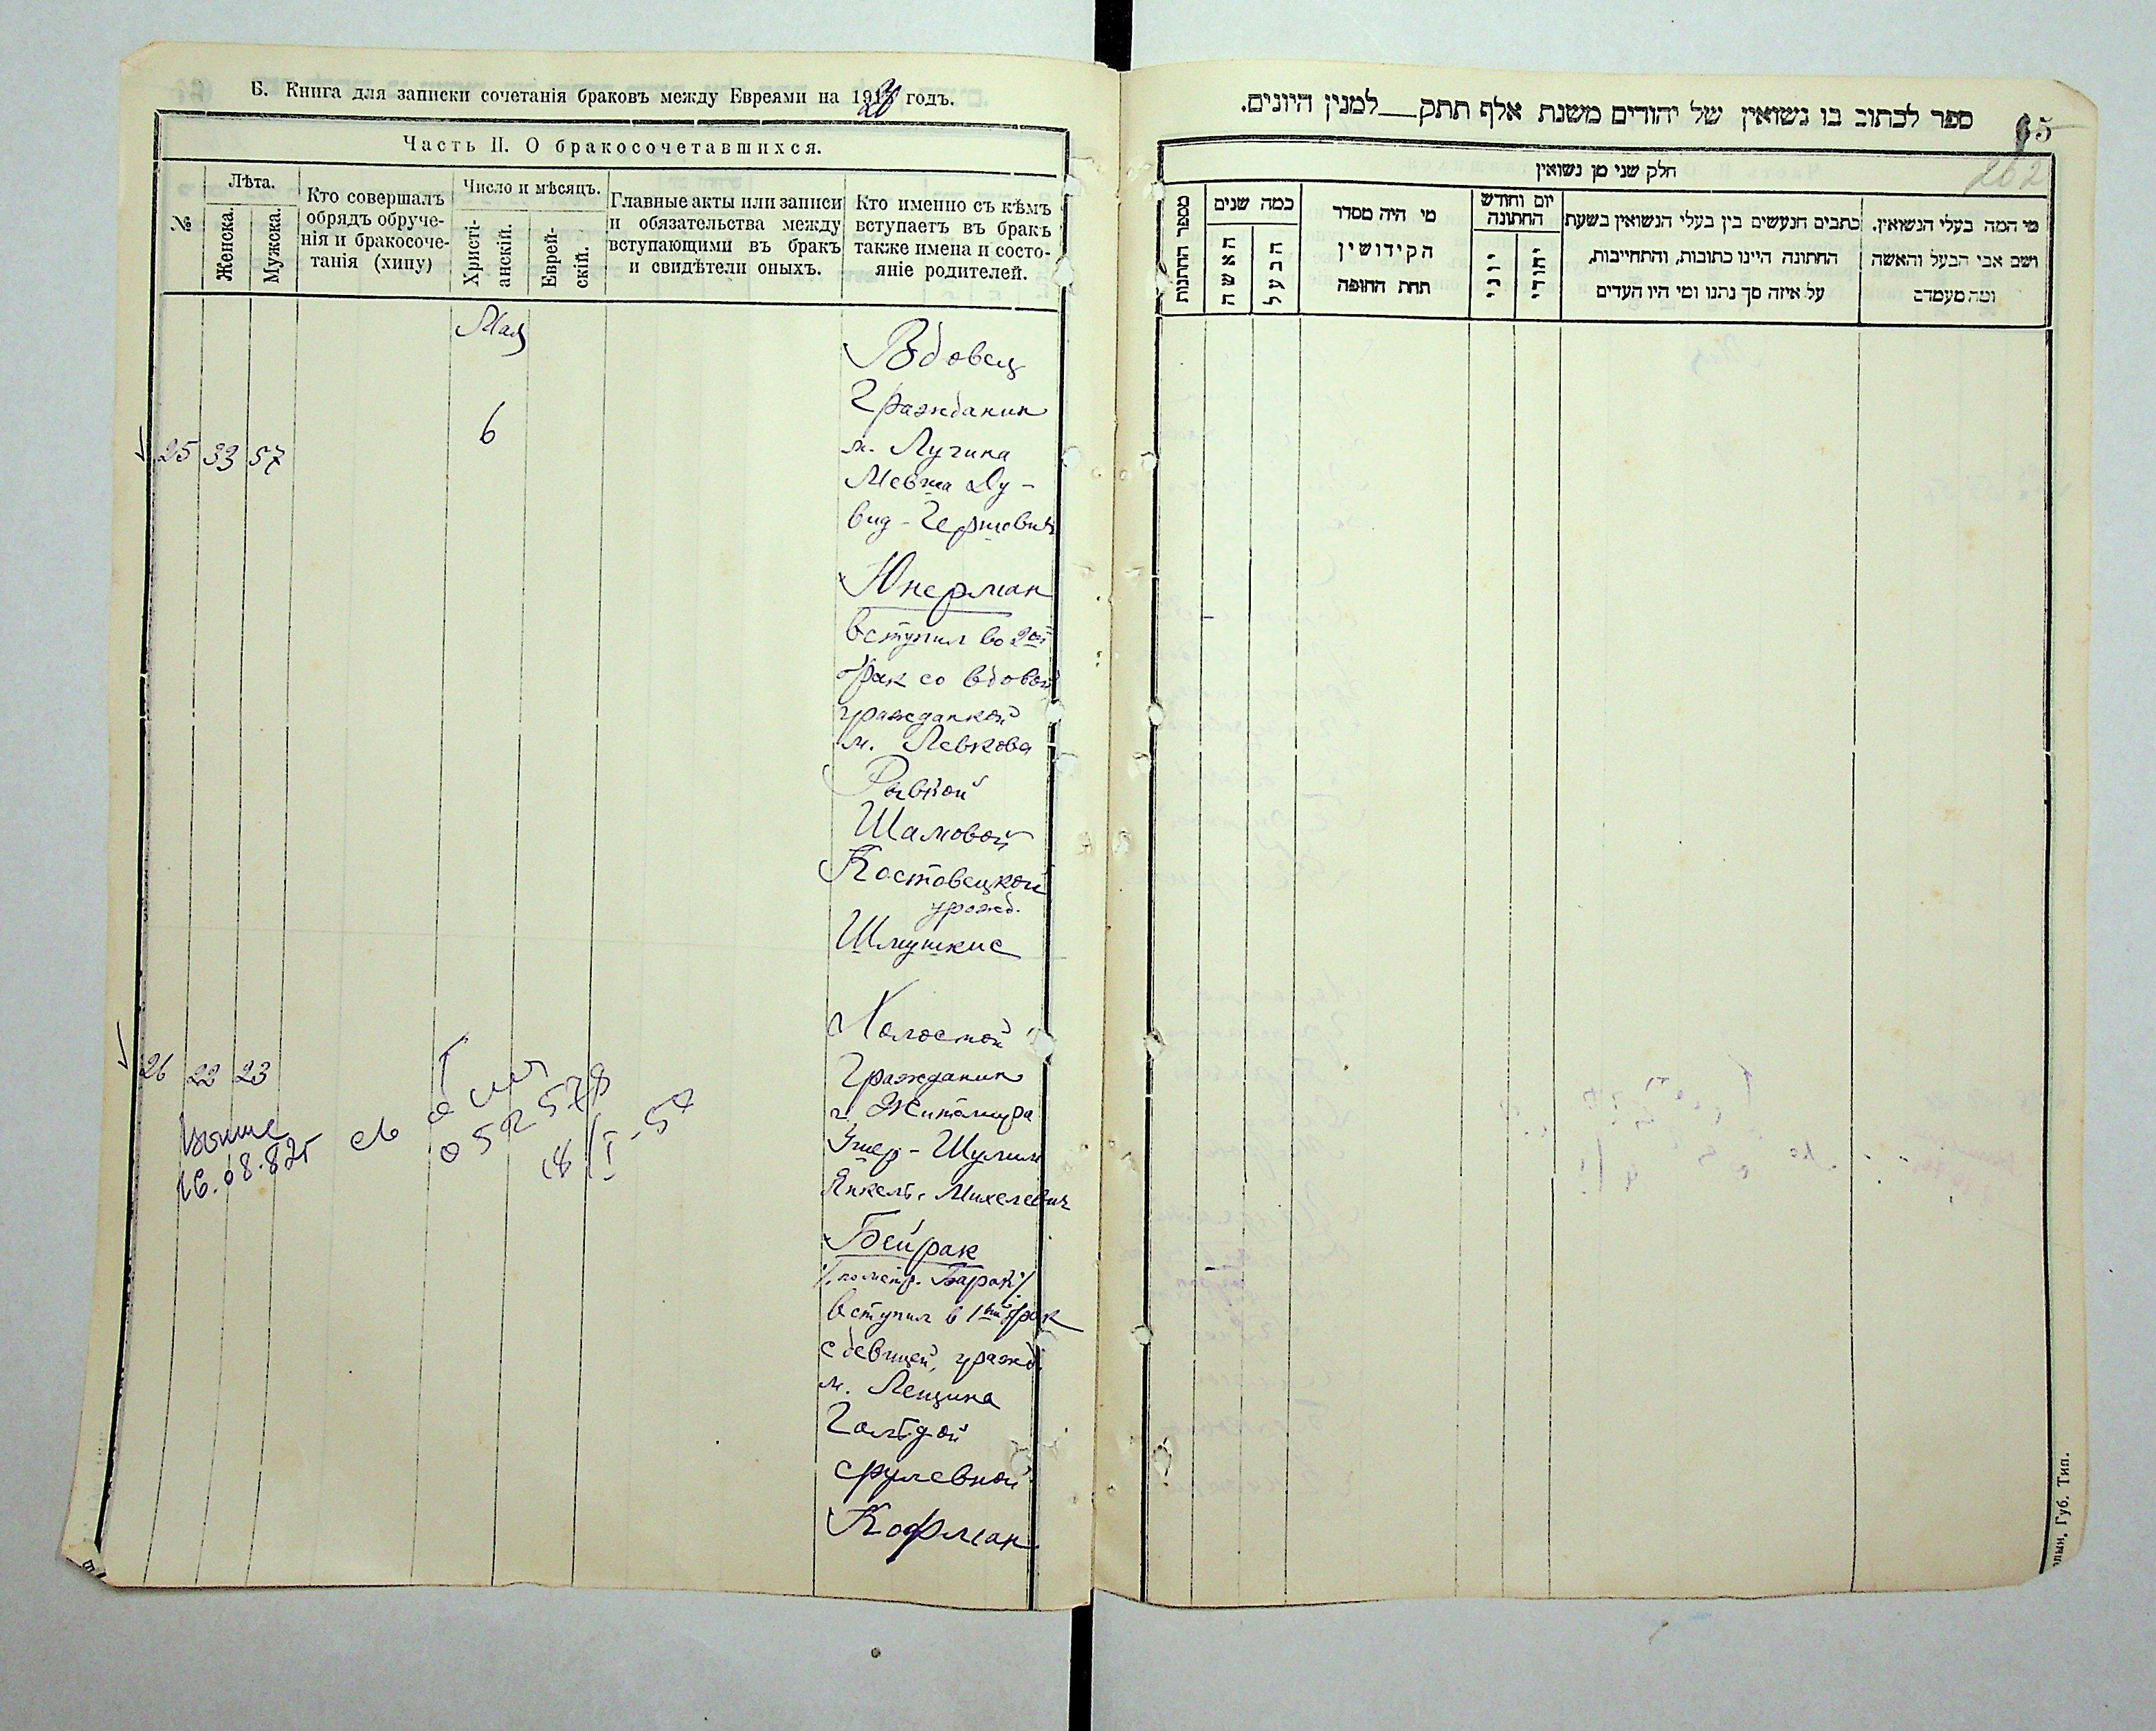 Б. Книга для записки сочетанія браковъ между Евреями на 19 годъ.
Часть II. О бракосочетавшихся.
№
Лѣта.
Женска.
Мужска.
Кто совершалъ
обрядъ обруче-
нія и бракосоче-
танія (хипу)
Число и мѣсяцъ.
Христі-
анскій.
Еврей-
скій.
Главные акты или записи
и обязательства между
вступающими въ бракъ
и свидѣтели оныхъ.
Кто именно съ кѣмъ
вступаетъ въ бракъ
также имена и состо-
яніе родителей.
Мая
25 33 57
6
Вдовец
Гражданин
м. Лугина
Мевша Ду-
вид-Гершович
Юнерман
вступил во 2ой
брак со вдовой
гражданкой
м. Левкова
Рывкой
Шамовой
Костовецкой
урожд.
Шмушкис
26 22 23
16.08.825
052578
18/I-57
Холостой
Гражданин
г. Житомира
Ушер-Шулим
Янкель-Михелевич
Бейрак
/по метр. Барак/
вступил в 1ый брак
с девицей, гражд.
м. Лещина
Гольдой
Срулевной
Кофман
ספר לכתוב בו נשואין של יהודים משנת אלף תתק למנין היונים.
65
262
חלק שני מן נשואין
מספר החתונות
כמה שנים
האשה
הבעל
מי היה מסדר
הקידושין
תחת החופה
יום וחודש
החתונה
יוני
יהודי
כתבים הנעשים בין בעלי הנשואין בשעת
החתונה היינו כתובות, והתחייבות,
על איזה סך נתנו ומי היו העדים
מי המה בעלי הנשואין,
ושם אבי הבעל והאשה
ומה מעמדם
Губ. Тип.